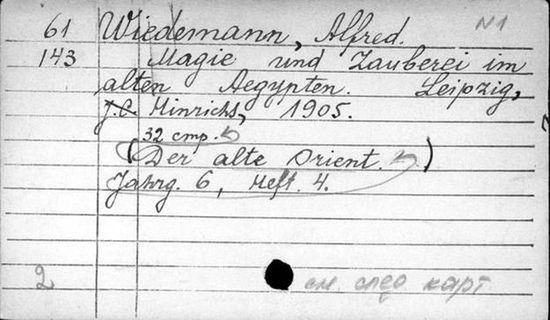 61 Wiedemann, Alfred. N1
143 Magie und Zauberei im
alten Aegypten. Leipzig,
J.C. Hinrichs, 1905.
32 стр.
(Der alte Orient.)
Jahrg. 6, Heft. 4.
2 см. след карт